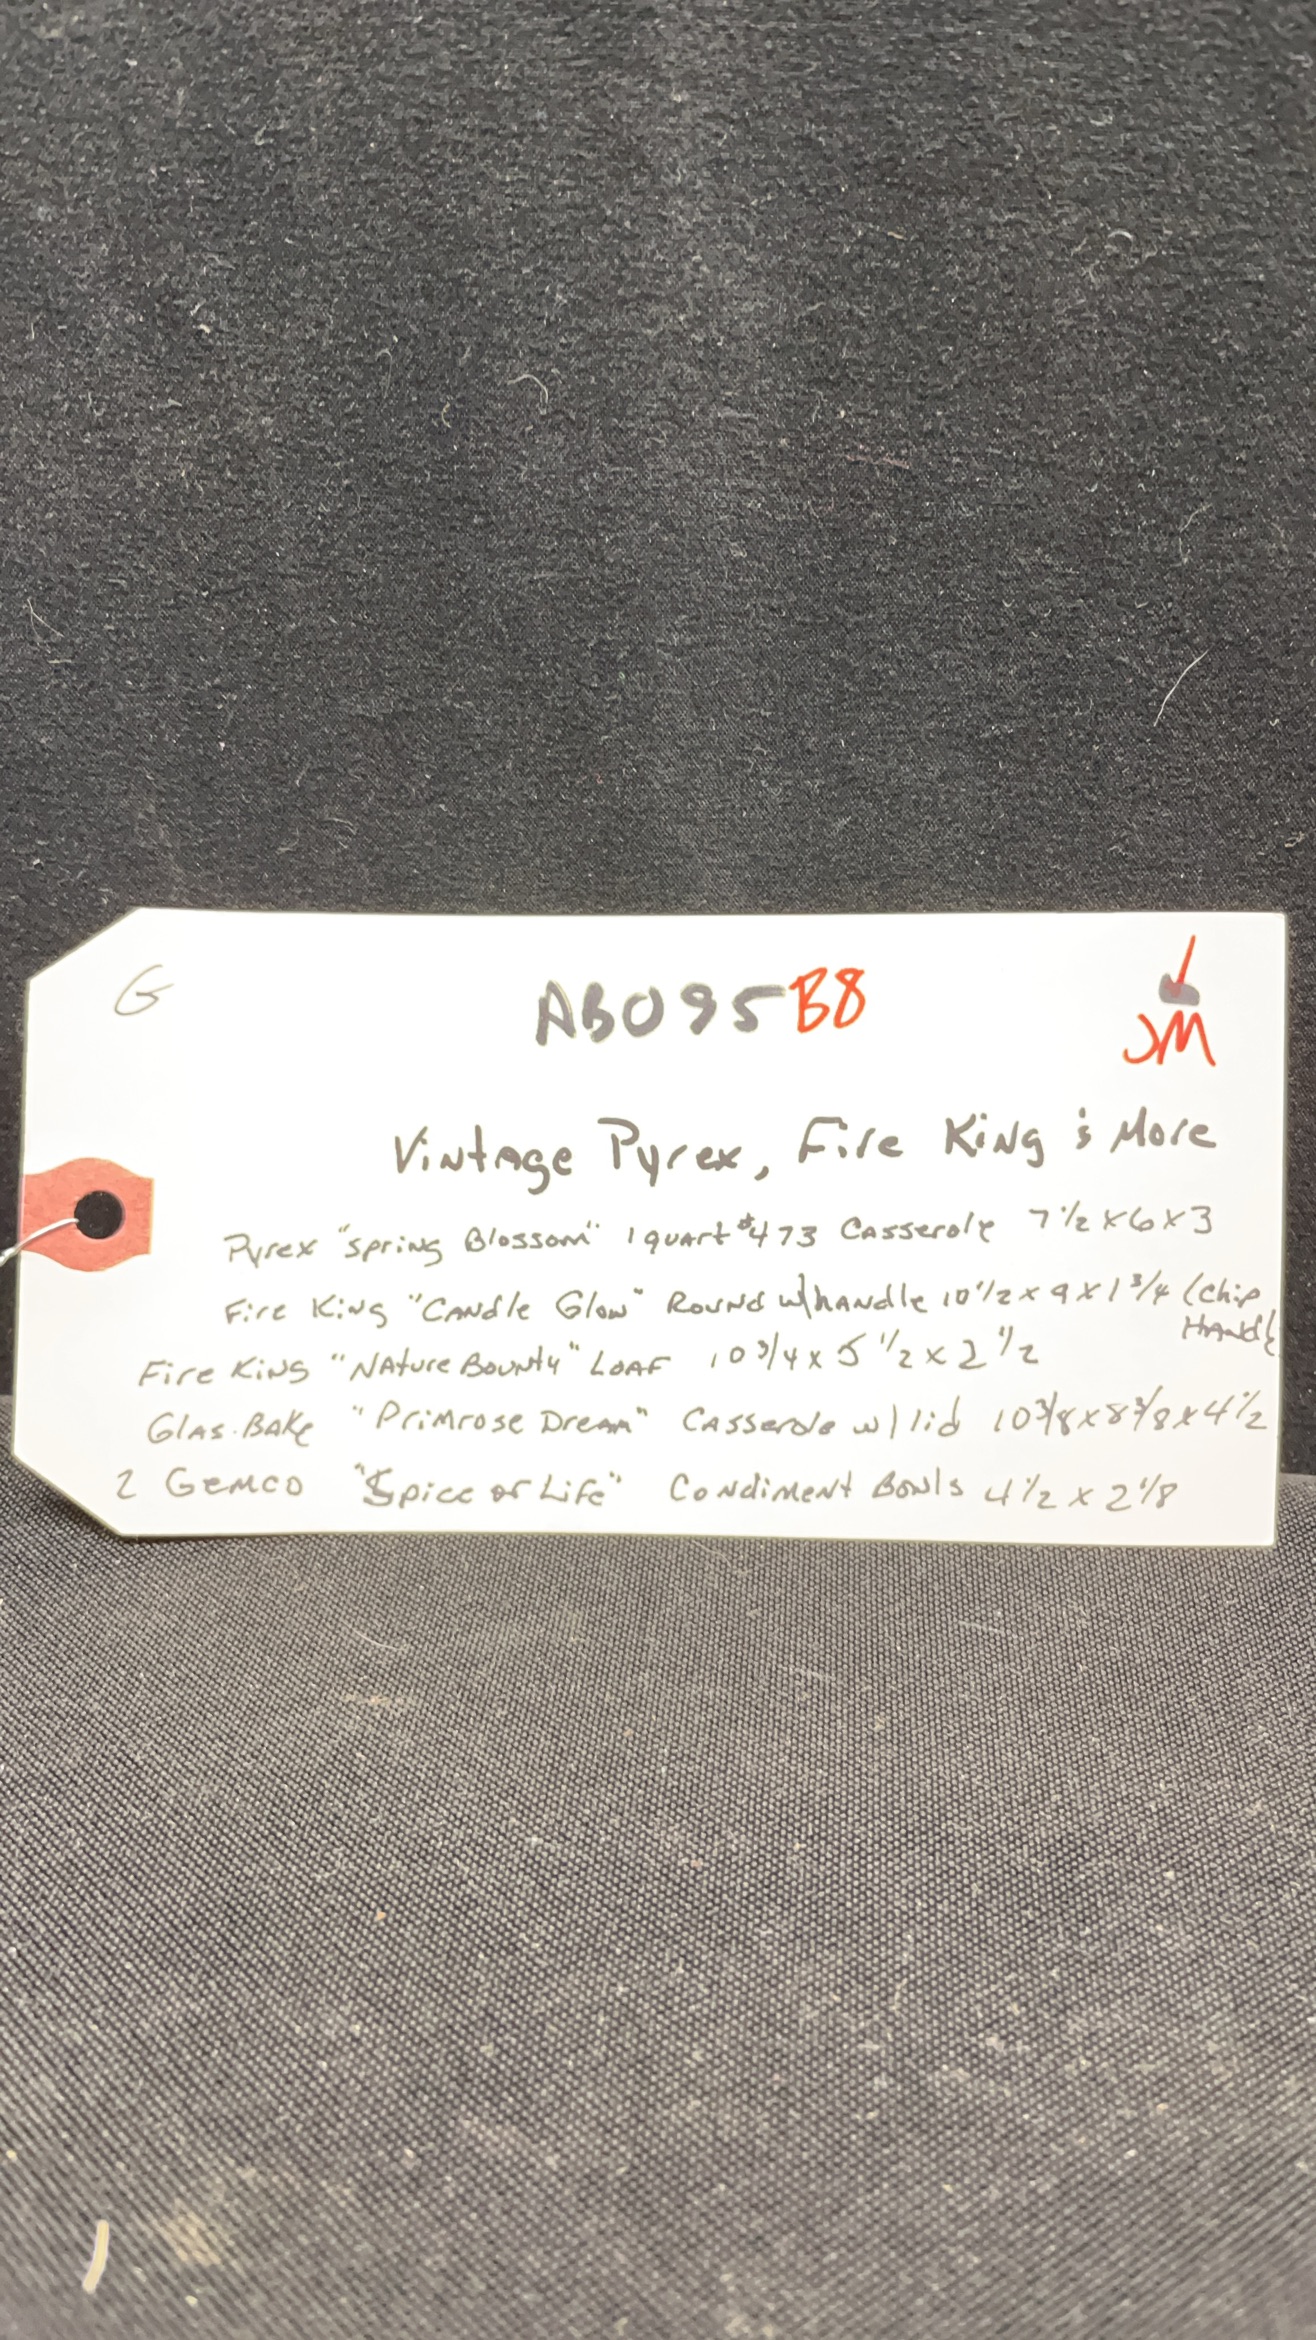 G
AB095B8
JM
Vintage Pyrex, Fire King & More
Pyrex "Spring Blossom" 1 quart #473 Casserole 7 1/2 x 6 x 3
Fire King "Candle Glow" Round w/handle 10 1/2 x 9 x 1 3/4 (chip
Handle
Fire King "Nature Bounty" Loaf 10 3/4 x 5 1/2 x 2 1/2
Glas-Bake "Primrose Dream" Casserole w/ lid 10 3/8 x 8 3/8 x 4 1/2
2 Gemco "Spice of Life" Condiment Bowls 4 1/2 x 2 1/8